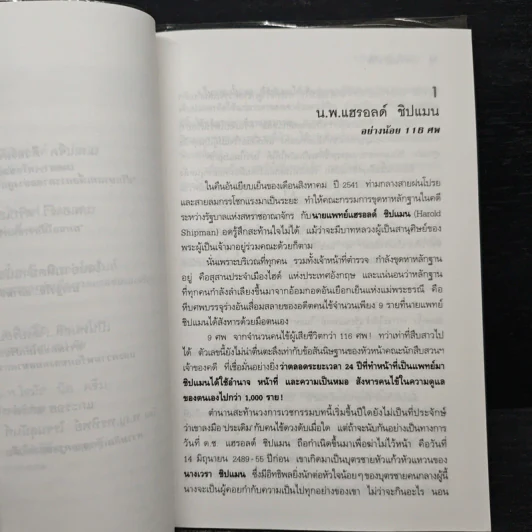 1
น.พ.แฮรอลด์ ชิปแมน
อย่างน้อย 116 ศพ
ในคืนอันเยียบเย็นของเดือนสิงหาคม ปี 2541 ท่ามกลางสายฝนโปรย
และสายลมกรรโชกแรงมาเป็นระยะ ทำให้คณะกรรมการขุดหาหลักฐานในคดี
ระหว่างรัฐบาลแห่งสหราชอาณาจักร กับนายแพทย์แฮรอลด์ ชิปแมน (Harold
Shipman) อดรู้สึกสะท้านใจไม่ได้ แม้ว่าจะมีบาทหลวงผู้เป็นสานุศิษย์ของ
พระผู้เป็นเจ้ามาอยู่ร่วมคณะด้วยก็ตาม
นั่นเพราะบริเวณที่ทุกคน รวมทั้งเจ้าหน้าที่ตำรวจ กำลังขุดหาหลักฐาน
อยู่ คือสุสานประจำเมืองไฮด์ แห่งประเทศอังกฤษ และแน่นอนว่าหลักฐาน
ที่ทุกคนกำลังลำเลียงขึ้นมาจากอ้อมกอดอันเยือกเย็นแห่งแม่พระธรณี คือ
หีบศพบรรจุร่างอันเสื่อมสลายของอดีตคนไข้จำนวนเพียง 9 รายที่นายแพทย์
ชิปแมนได้สังหารด้วยมือตนเอง
9 ศพ จากจำนวนคนไข้ผู้เสียชีวิตกว่า 116 ศพ! ทว่าเท่าที่สืบสาวไป
ได้ ตัวเลขนี้ยังไม่น่าตื่นตะลึงเท่ากับข้อสันนิษฐานของหัวหน้าคณะนักสืบสวนฯ
เจ้าของคดี ที่เชื่อมั่นอย่างยิ่งว่าตลอดระยะเวลา 24 ปีที่ทำหน้าที่เป็นแพทย์มา
ชิปแมนได้ใช้อำนาจ หน้าที่ และความเป็นหมอ สังหารคนไข้ในความดูแล
ของตนเองไปกว่า 1,000 ราย!
ตำนานสะท้านวงการเวชกรรมบทนี้เริ่มขึ้นปีใดยังไม่เป็นที่ประจักษ์
ว่าเขาลงมือ 'ประเดิม' กับคนไข้ดวงดับเมื่อใด แต่ถ้าจะนับกันอย่างเป็นทางการ
วันที่ ด.ช. แฮรอลด์ ชิปแมน ถือกำเนิดขึ้นมาเพื่อฆ่าไม่ไว้หน้า คือวันที่
14 มิถุนายน 2489-55 ปีก่อน เขาเกิดมาเป็นบุตรชายหัวแก้วหัวแหวนของ
นางเวรา ชิปแมน ซึ่งมีอิทธิพลยิ่งนักต่อหัวใจน้อยๆ ของบุตรชายคนกลางผู้นี้
นางจะเป็นผู้คอยกำกับความเป็นไปทุกอย่างของเขา ไม่ว่าจะกินอะไร นอน